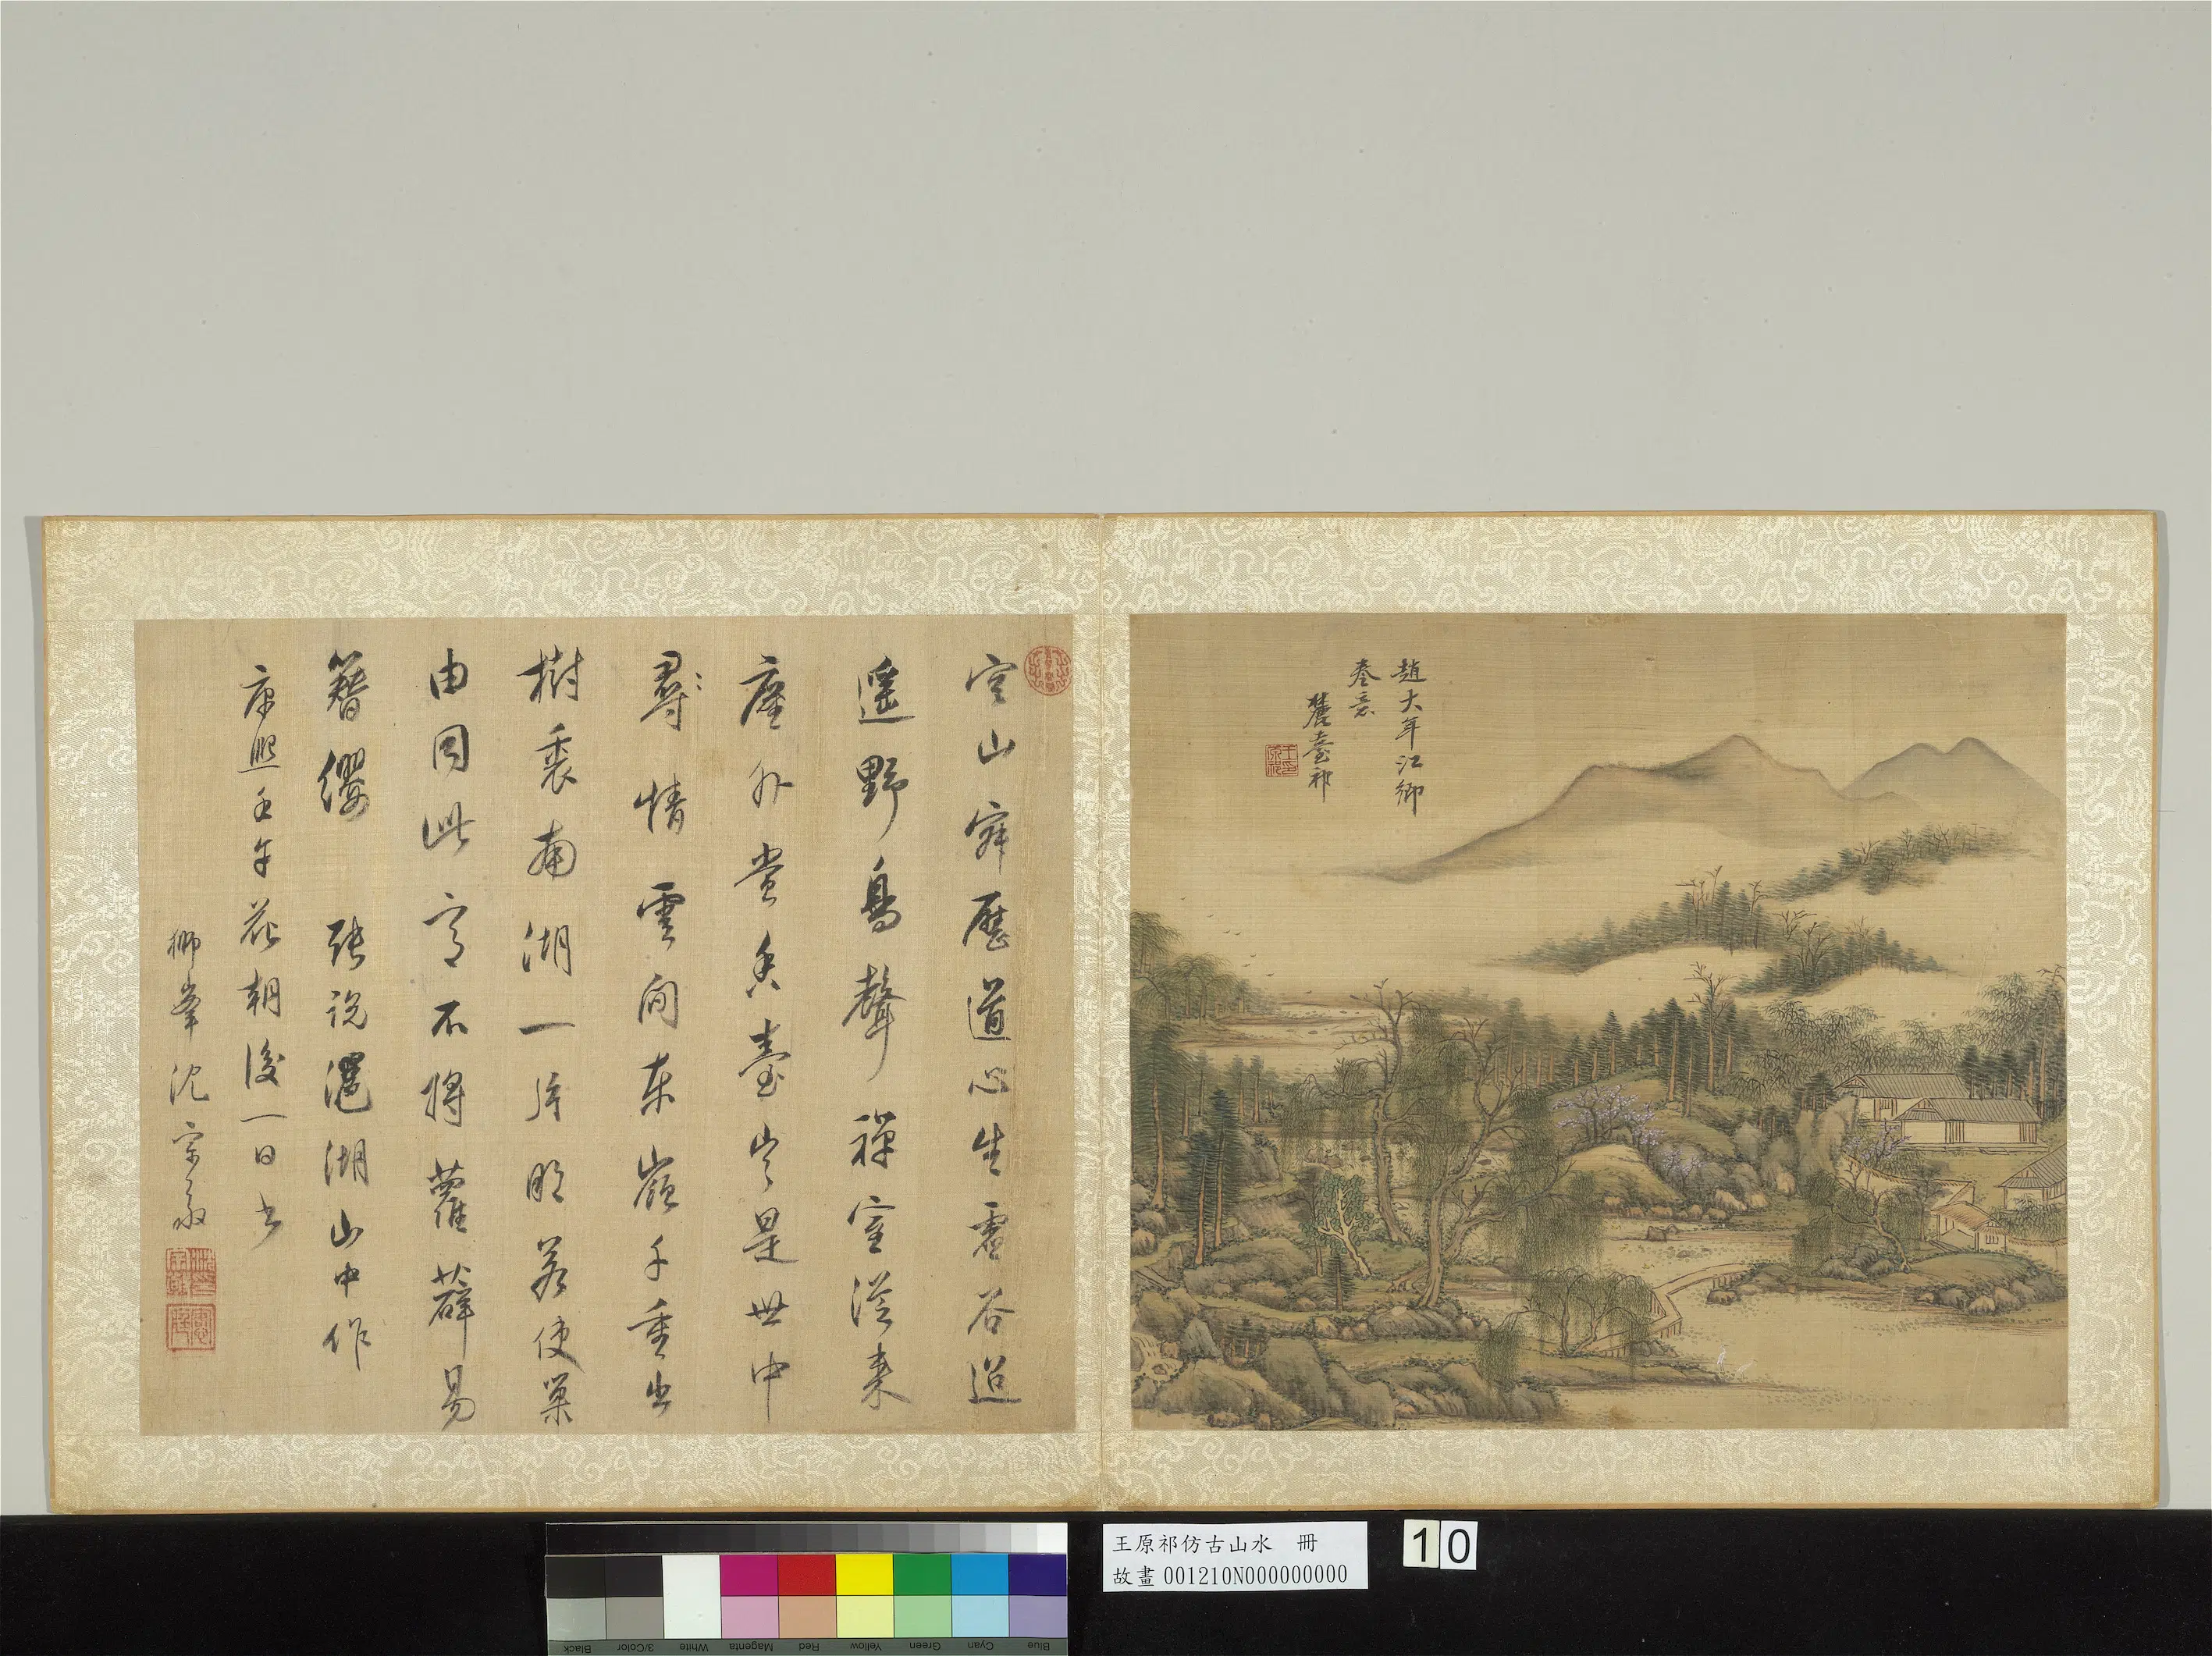 趙大年江鄉
春意
麓臺祁
王原祁印
空山寂歷道心生虛谷迢
遙野鳥聲禪室從來
塵外賞香臺豈是世中
尋情雲間東嶺千重出
樹裏南湖一片明若使巢
由同此意不將蘿薜易
簪纓 張說灉湖山中作
康熙壬午花朝後一日書
獅峯沈宗敬
王原祁仿古山水 冊
故畫 001210N000000000
10
Black
3/Color
White
Magenta
Red
Yellow
Green
Cyan
Blue